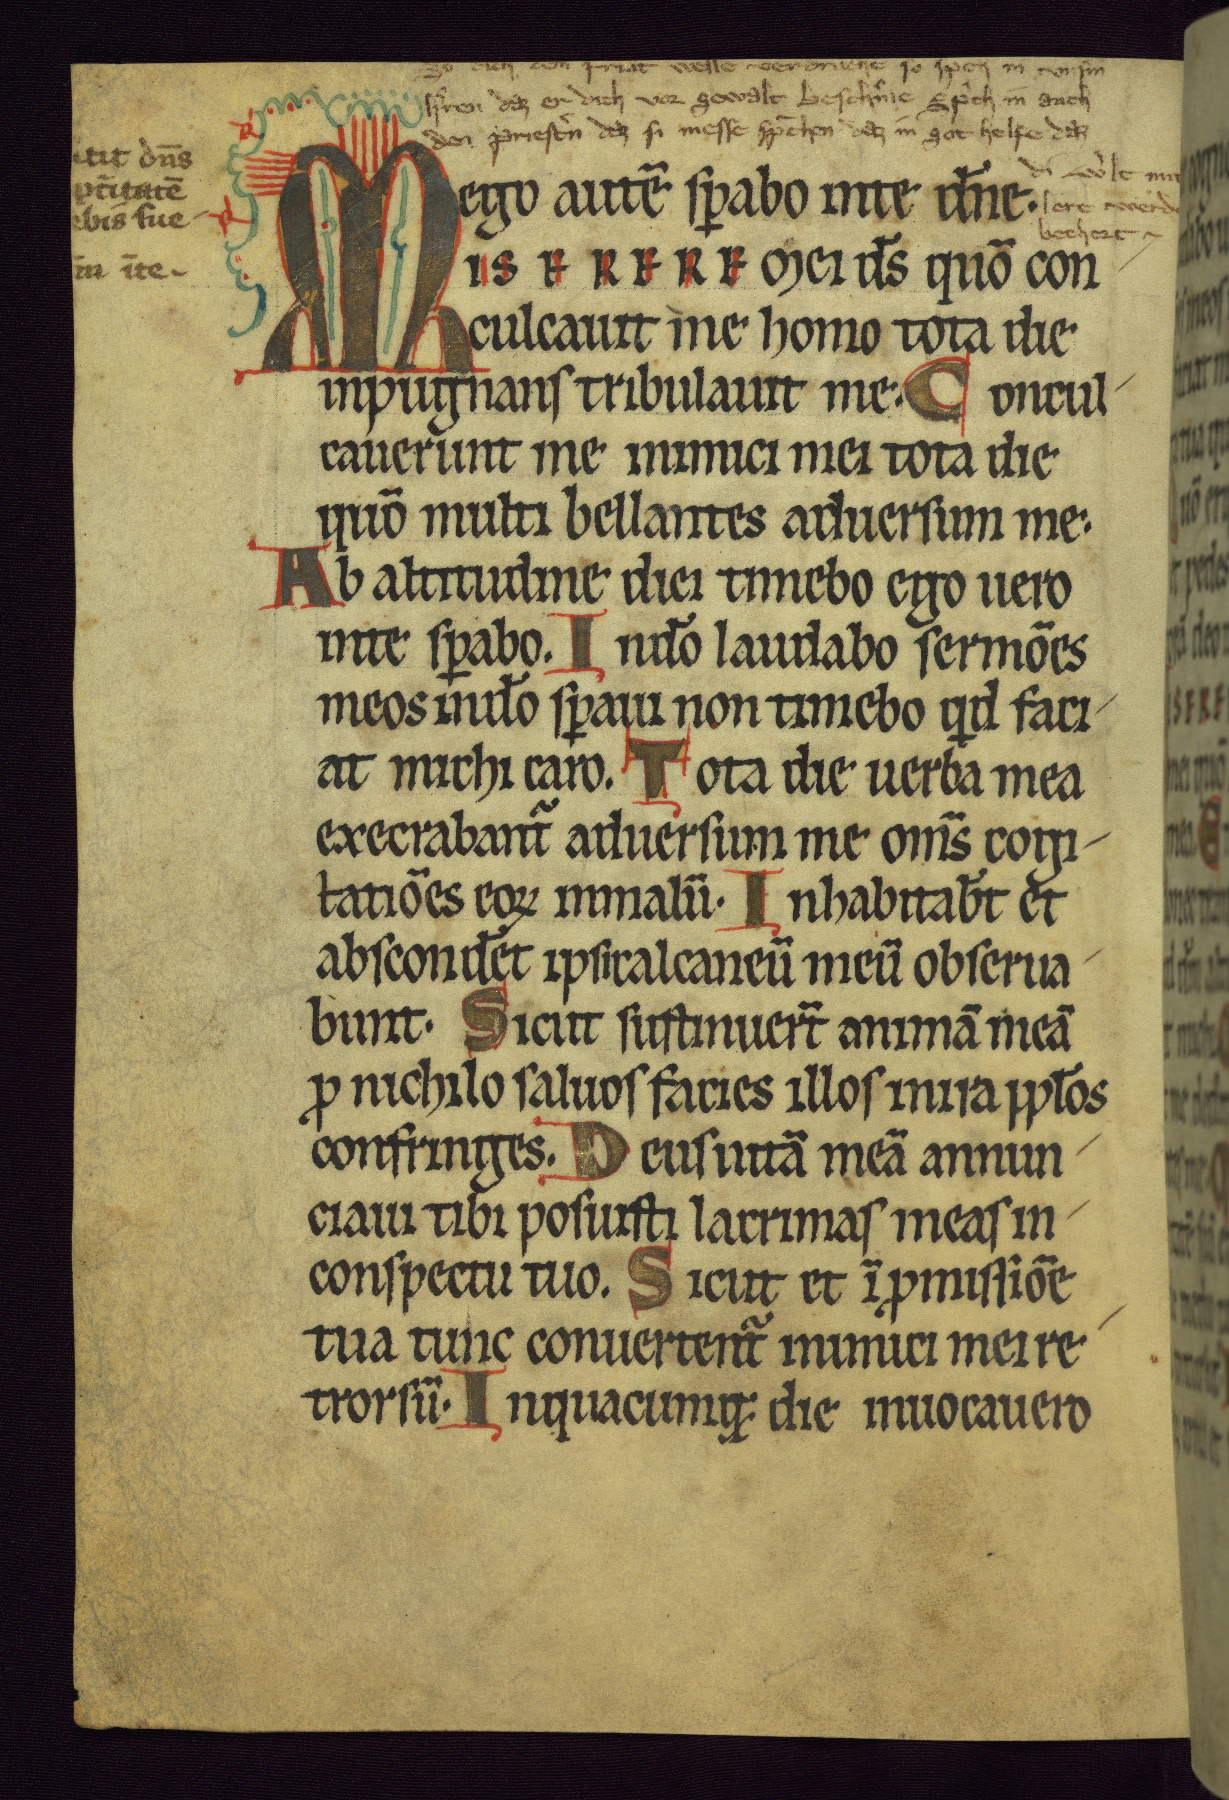 hren daz er dich vor gewalt beschirme Sprich in auch
den priestern daz si messe sprechen daz in got helfe daz
itit dn̄s
ebis sue
in īte
bechert
ego autē sꝑabo inte dn̄e.
M is E R E R E mei ds̄ quō con
culcauit me homo tota die
inpugnans tribulauit me. C oncul
cauerunt me inimici mei tota die
quō multi bellantes aduersum me.
Ab altitudine diei timebo ego uero
inte sꝑabo. I ndō laudabo sermōes
meos indō sꝑaui non timebo qid faci
at michi caro. T ota die uerba mea
execrabant̃ aduersum me om̄s cogi
tatiōes eoꝝ inmalū. I nhabitabt̄ et
abscondēt ipsi calcaneū meū obserua
bunt. Sicut sustinuert̄ animā meā
ꝓ nichilo saluos facies illos inira ppl̄os
confringes. D eus uitā meā annun
ciaui tibi posuisti lacrimas meas in
conspectu tuo. S icut et ī ꝓmissiōe
tua tunc conuertent̃ inimici mei re
trorsū. I nquacumqꝫ die inuocauero